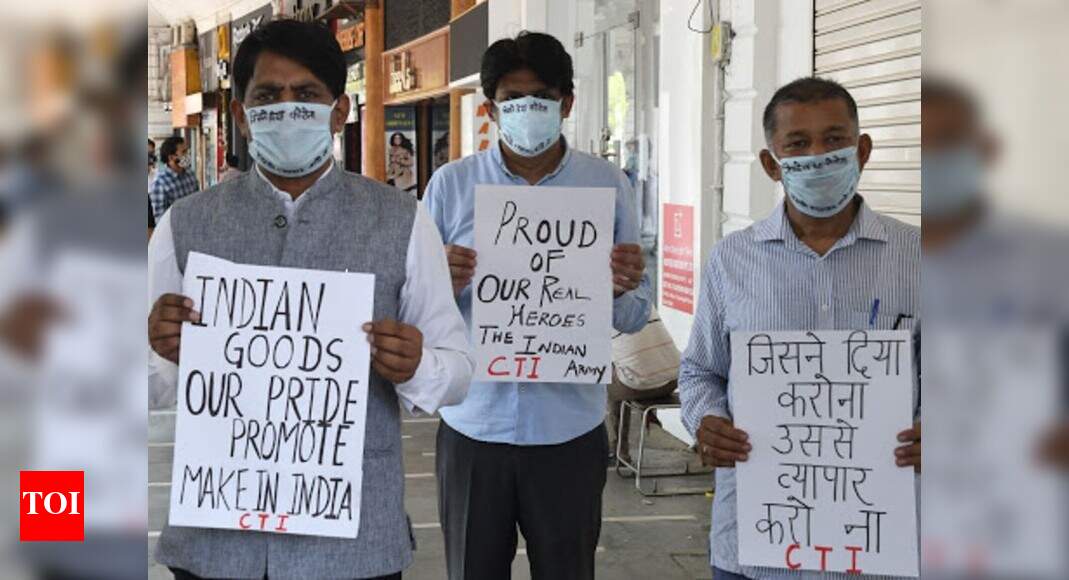 INDIAN
GOODS
OUR PRIDE
PROMOTE
MAKE IN INDIA
CTI
PROUD
OF
OUR REAL
HEROES
THE INDIAN
CTI ARMY
जिसने दिया
करोना
उससे
व्यापार
करो ना
CTI
TOI